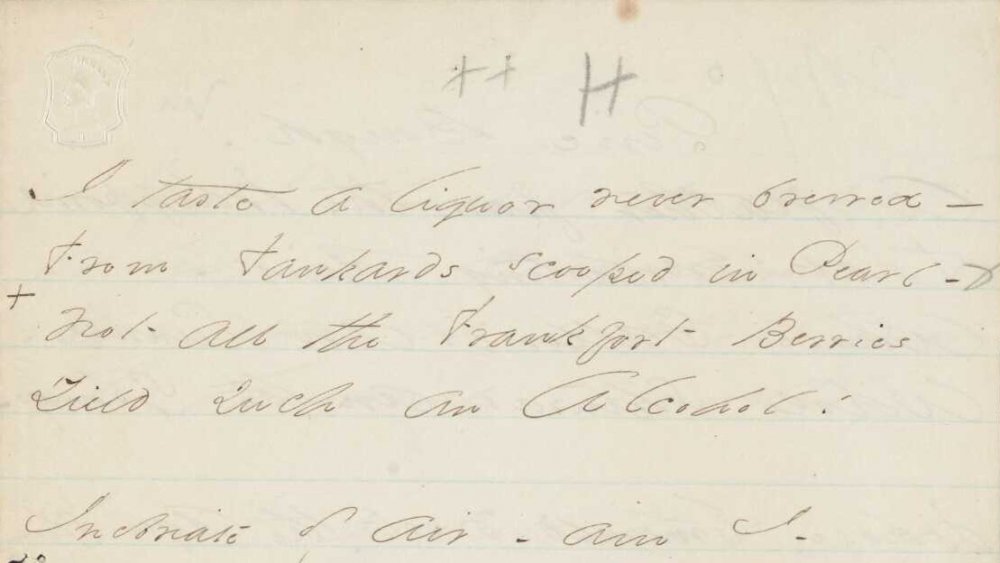 ++ H
I taste a liquor never brewed –
From Tankards scooped in Pearl –
+ Not all the Frankfort Berries
Yield such an Alcohol!
Inebriate of air – am I –